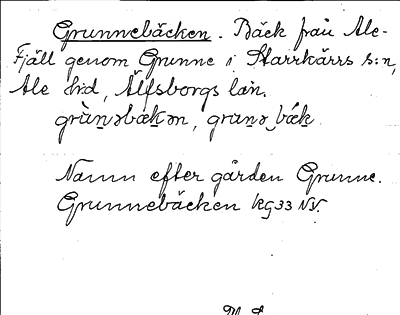 Grunnebäcken. Bäck från Ale-
Fjäll genom Grunne i Starrkärrs s:n,
Ale hd, Älfsborgs län.
grùn̲əbäk̲ən, grunə_bäk̲

Namn efter gården Grunne.
Grunnebäcken kg33 NV.